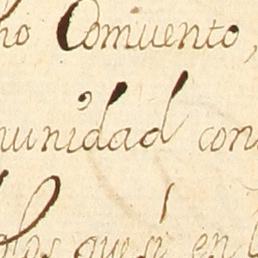 ho Comuento,
unidad con
los que si en l